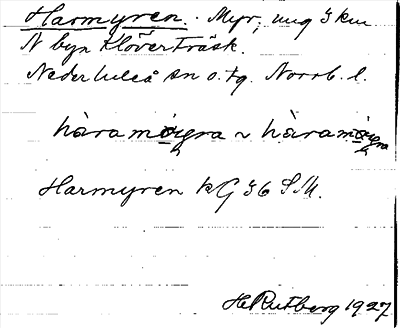 Harmyren. Myr, ung 3 km
N byn Klöverträsk.
Nederluleå sn o. tg. Norrb. l.
hàramö̀igra ~ hàramö̀igra
Harmyren kG 36 S.M.
H Rutberg 1927